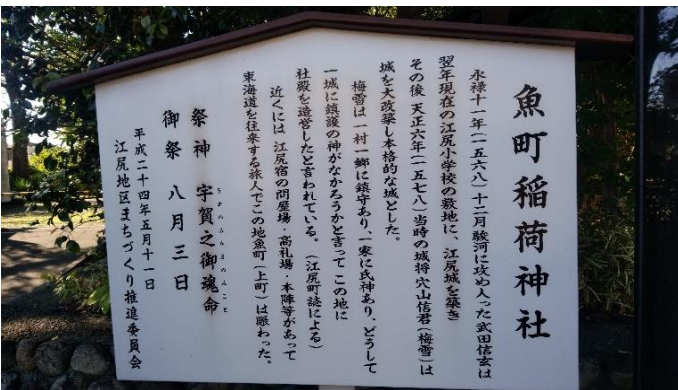 魚町稲荷神社
永禄十一年(一五六八)十二月駿河に攻め入った武田信玄は
翌年現在の江尻小学校の敷地に、江尻城を築き
その後 天正六年(一五七八)当時の城将 穴山信君(梅雪)は
城を大改築し本格的な城とした。
梅雪は 一村一郷に鎮守あり、一家に氏神あり、どうして
一城に鎮護の神がなかろうかと言って、この地に
社殿を造営したと言われている。(江尻町誌による)
近くには 江尻宿の問屋場・高札場・本陣等があって
東海道を往来する旅人でこの地魚町(上町)は賑わった。
祭神 宇賀之御魂命
うかのみたまのみこと
御祭 八月三日
平成二十四年五月十一日
江尻地区まちづくり推進委員会